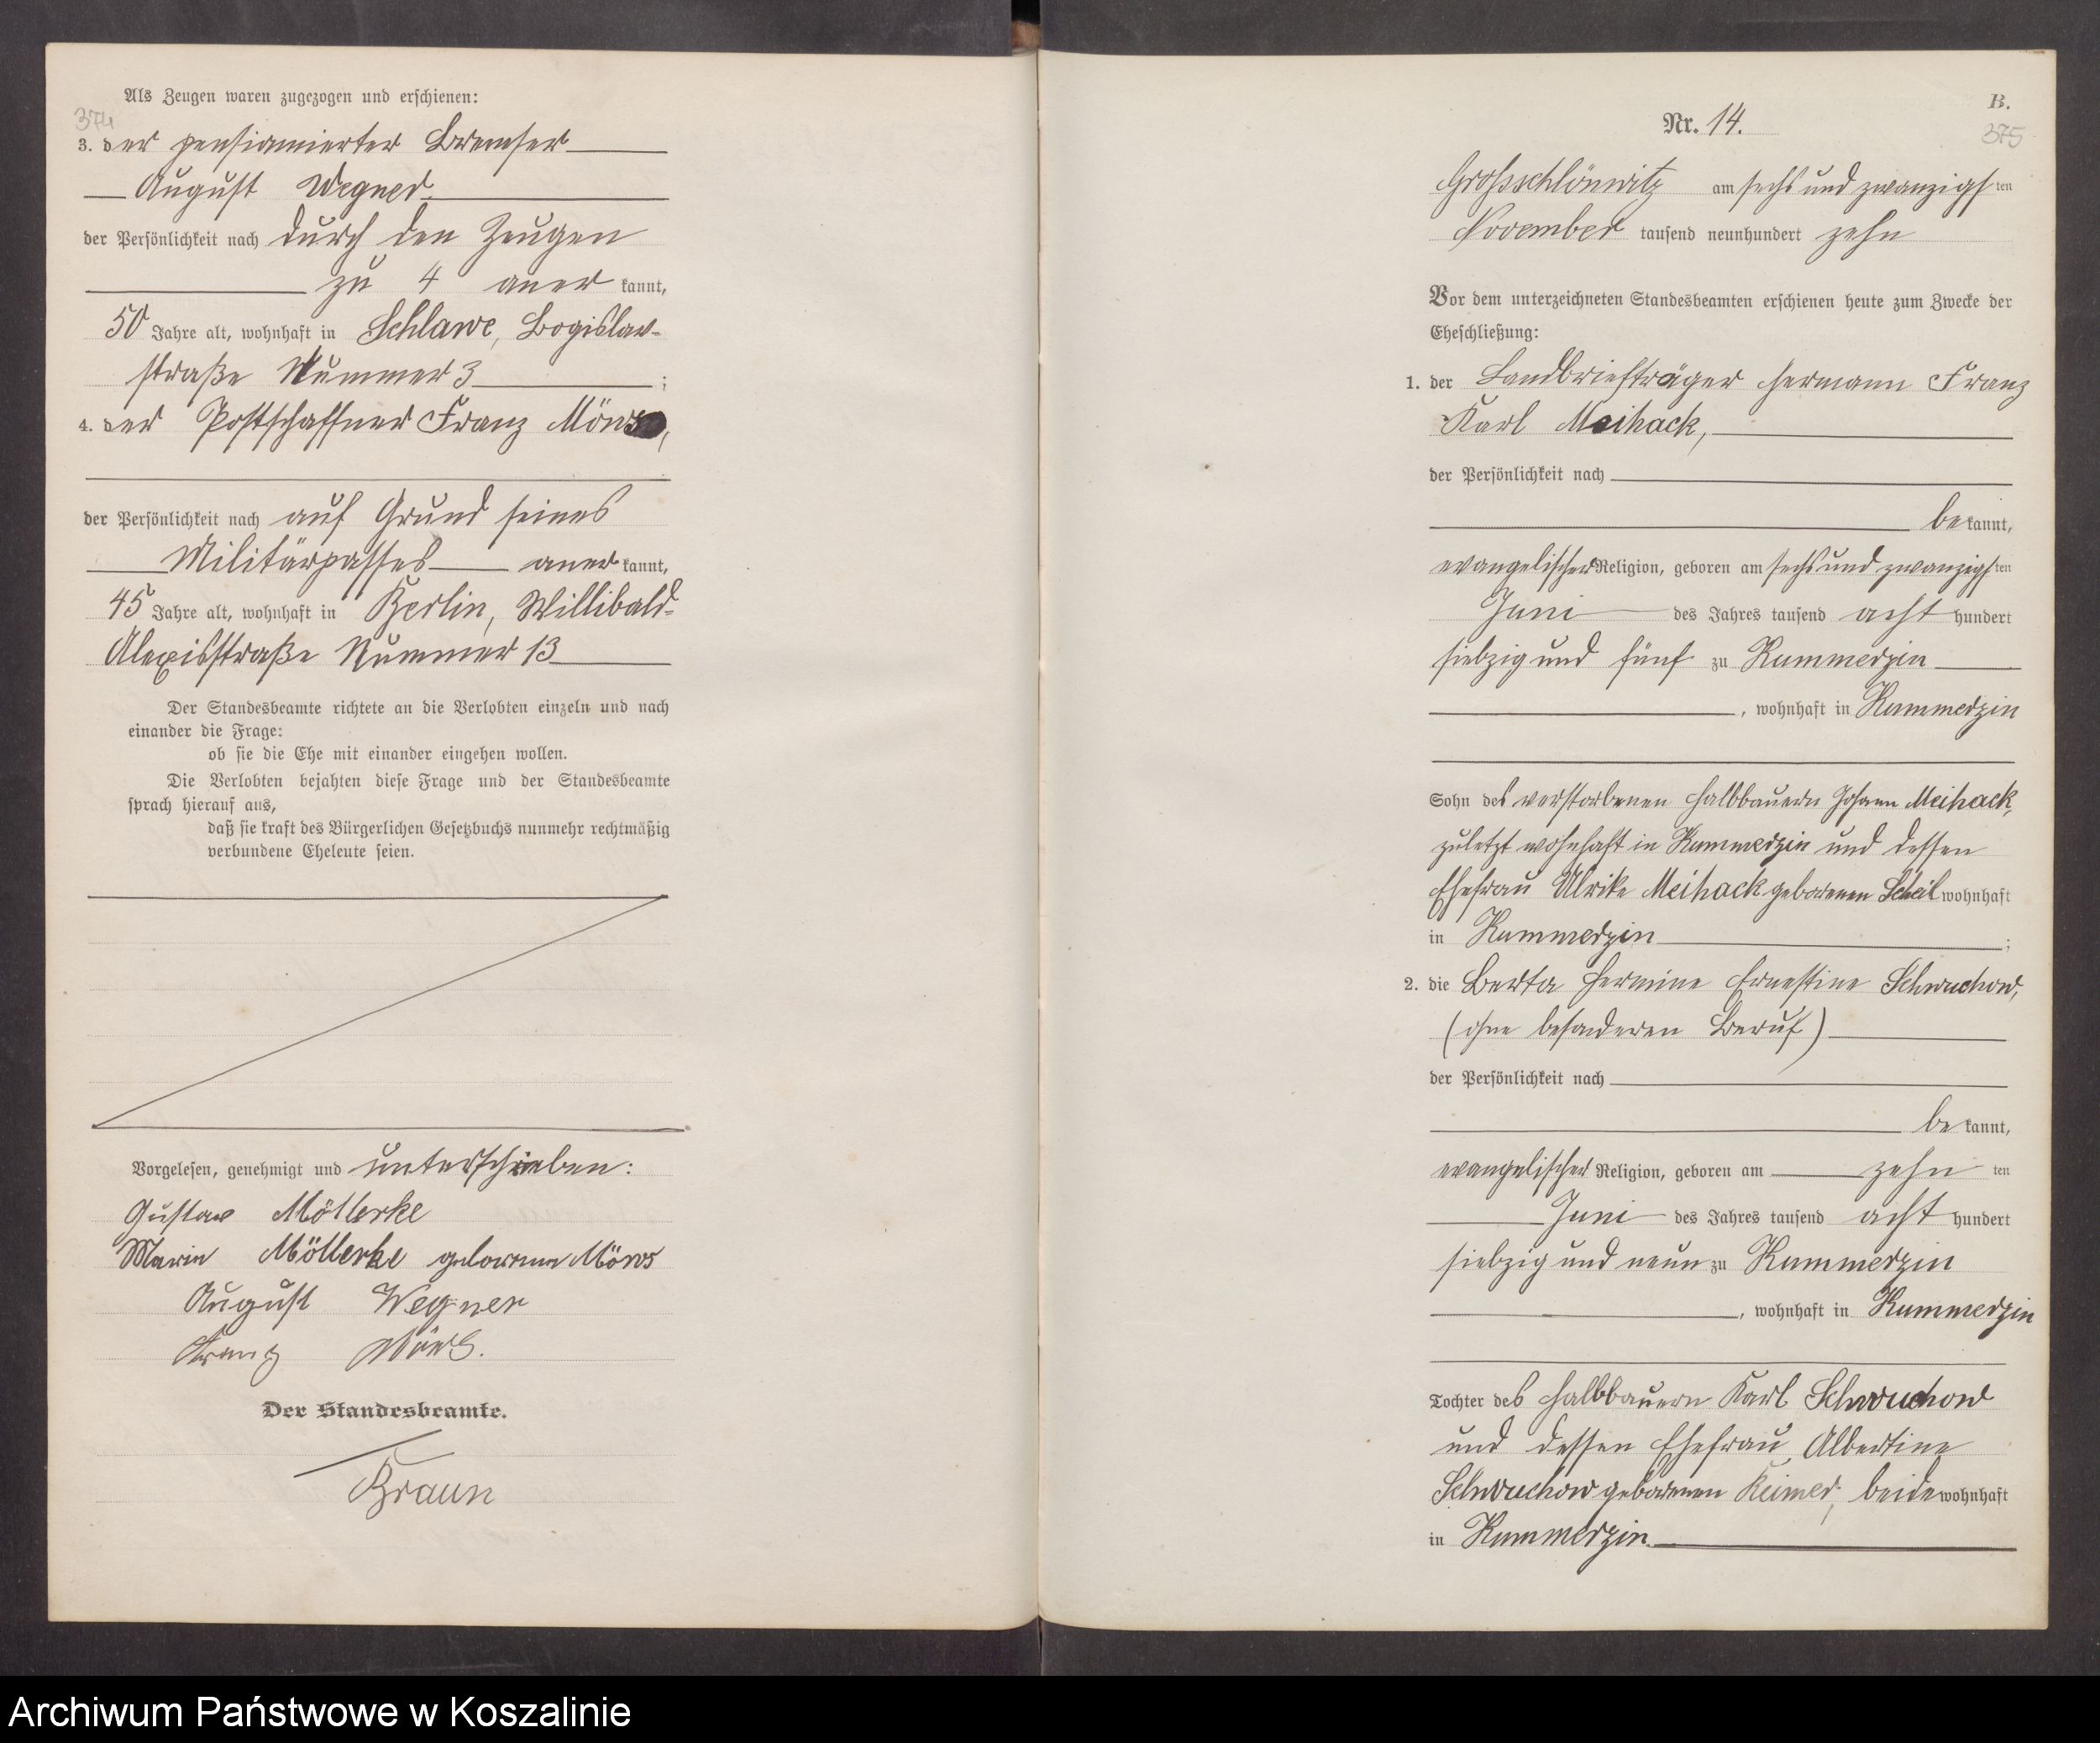 Als Zeugen waren zugezogen und erschienen:
374
3. der pensionierter Bremser
August Wegner
der Persönlichkeit nach durch den Zeugen
zu 4 aner kannt,
50 Jahre alt, wohnhaft in Schlawe, Bogislav-
straße Nummer 3 ;
4. der Postschaffner Franz Mörs,
der Persönlichkeit nach auf Grund seines
Militärpasses aner kannt,
45 Jahre alt, wohnhaft in Berlin, Willibald-
Alexisstraße Nummer 13
Der Standesbeamte richtete an die Verlobten einzeln und nach
einander die Frage:
ob sie die Ehe mit einander eingehen wollen.
Die Verlobten bejahten diese Frage und der Standesbeamte
sprach hierauf aus,
daß sie kraft des Bürgerlichen Gesetzbuchs nunmehr rechtmäßig
verbundene Eheleute seien.
Vorgelesen, genehmigt und unterschrieben:
Gustav Möllerke
Marie Möllerke geborene Mörs
August Wegner
Franz Mörs.
Der Standesbeamte.
Braun
B.
375
Nr. 14.
Grossschlönwitz am sechs und zwanzigsten
November tausend neunhundert zehn
Vor dem unterzeichneten Standesbeamten erschienen heute zum Zwecke der
Eheschließung:
1. der Landbriefträger Hermann Franz
Karl Meihack,
der Persönlichkeit nach
be kannt,
evangelischer Religion, geboren am sechs und zwanzigsten
Juni des Jahres tausend acht hundert
siebzig und fünf zu Kummerzin
, wohnhaft in Kummerzin
Sohn des verstorbenen Halbbauern Johann Meihack,
zuletzt wohnhaft in Kummerzin und dessen
Ehefrau Ulrike Meihack geborenen Scheil wohnhaft
in Kummerzin ;
2. die Berta Hermine Ernestine Schwuchow,
(ohne besonderen Beruf)
der Persönlichkeit nach
be kannt,
evangelischer Religion, geboren am zehn ten
Juni des Jahres tausend acht hundert
siebzig und neun zu Kummerzin
, wohnhaft in Kummerzin
Tochter des Halbbauern Karl Schwuchow
und dessen Ehefrau Albertine
Schwuchow geborenen Reimer, beide wohnhaft
in Kummerzin.
Archiwum Państwowe w Koszalinie